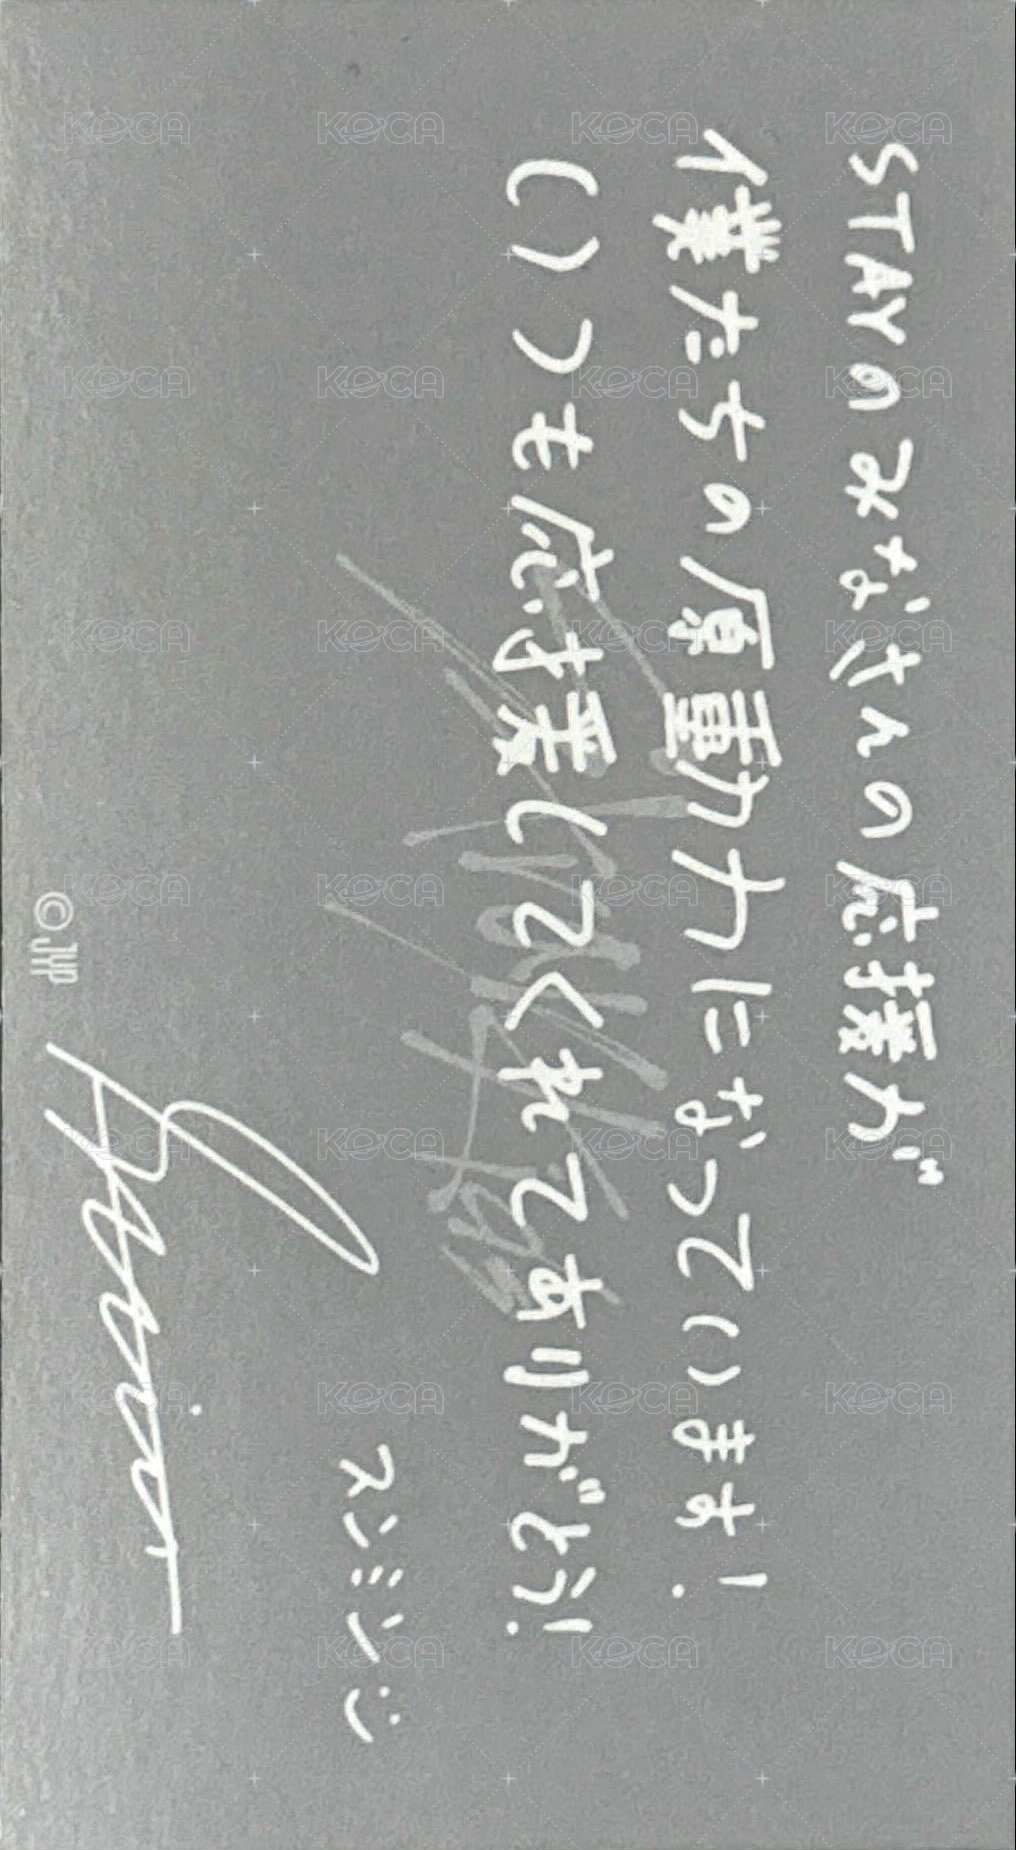 STAYのみなさんの応援が
僕たちの原動力になっています!
いつも応援してくれてありがとう!
スンミン:)
©JYP